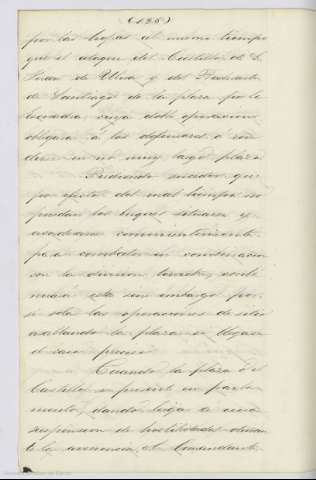 (125)
por las tropas al mismo tiempo
que el ataque del Castillo de S.
Juan de Ulua y del Baluarte
de Santiago de la plaza por la
escuadra cuya doble operacion
obligara á los defensores a ren
dirse en no muy largo plazo
Pudiendo suceder que
por efecto del mal tiempo no
puedan los buques situarse y
acoderarse convenientemente
para combatir en combinacion
con la division terrestre, conti
nuará esta sin embargo por
si sola las operaciones de sitio
asaltando la plaza si llegare
el caso preciso
Cuando la plaza ó el
Castillo se presente en parla
mento, dando lugar a una
suspension de hostilidades duran
te la avenencia, el Comandante